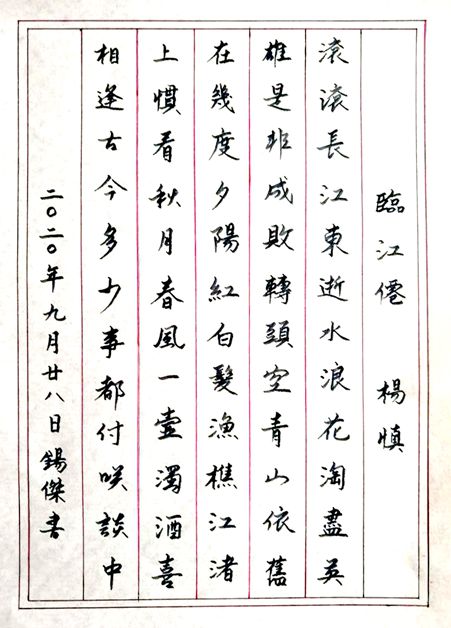 臨江僊　楊慎
滾滾長江東逝水浪花淘盡英
雄是非成敗轉頭空青山依舊
在幾度夕陽紅白髮漁樵江渚
上慣看秋月春風一壺濁酒喜
相逢古今多少事都付咲談中
二〇二〇年九月廿八日錫傑書